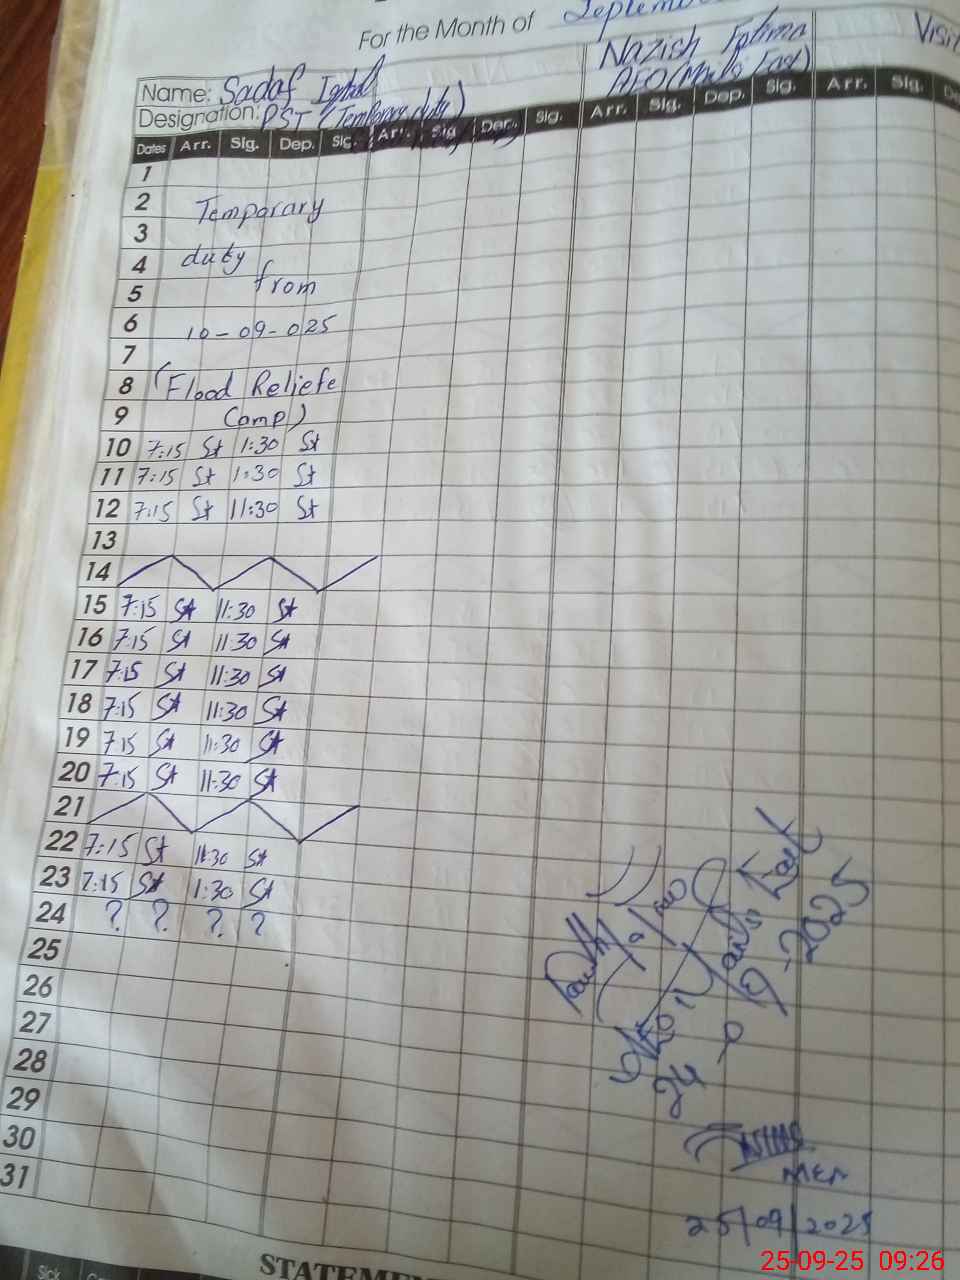 For the Month of September
Name: Sadaf Iqbal
Nazish Fatima
Visit
Designation: PST (Temporary duty)
AEO
Dates Arr. Sig. Dep. Sig. Arr. Sig. Dep. Sig. Arr. Sig. Dep. Sig. Arr. Sig.
1
2 Temporary
3
4 duty
5 from
6 10-09-025
7
8 (Flood Reliefe
9 Camp)
10 7:15 St 1:30 St
11 7:15 St 1:30 St
12 7:15 St 11:30 St
13
14
15 7:15 St 11:30 St
16 7:15 St 11:30 St
17 7:15 St 11:30 St
18 7:15 St 11:30 St
19 7:15 St 11:30 St
20 7:15 St 11:30 St
21
22 7:15 St 11:30 St
23 7:15 St 1:30 St
24 ? ? ? ?
25
26
27
28
29
30
31
24-9-2025
25/09/2025
STATEMEN
Sick
25-09-25 09:26